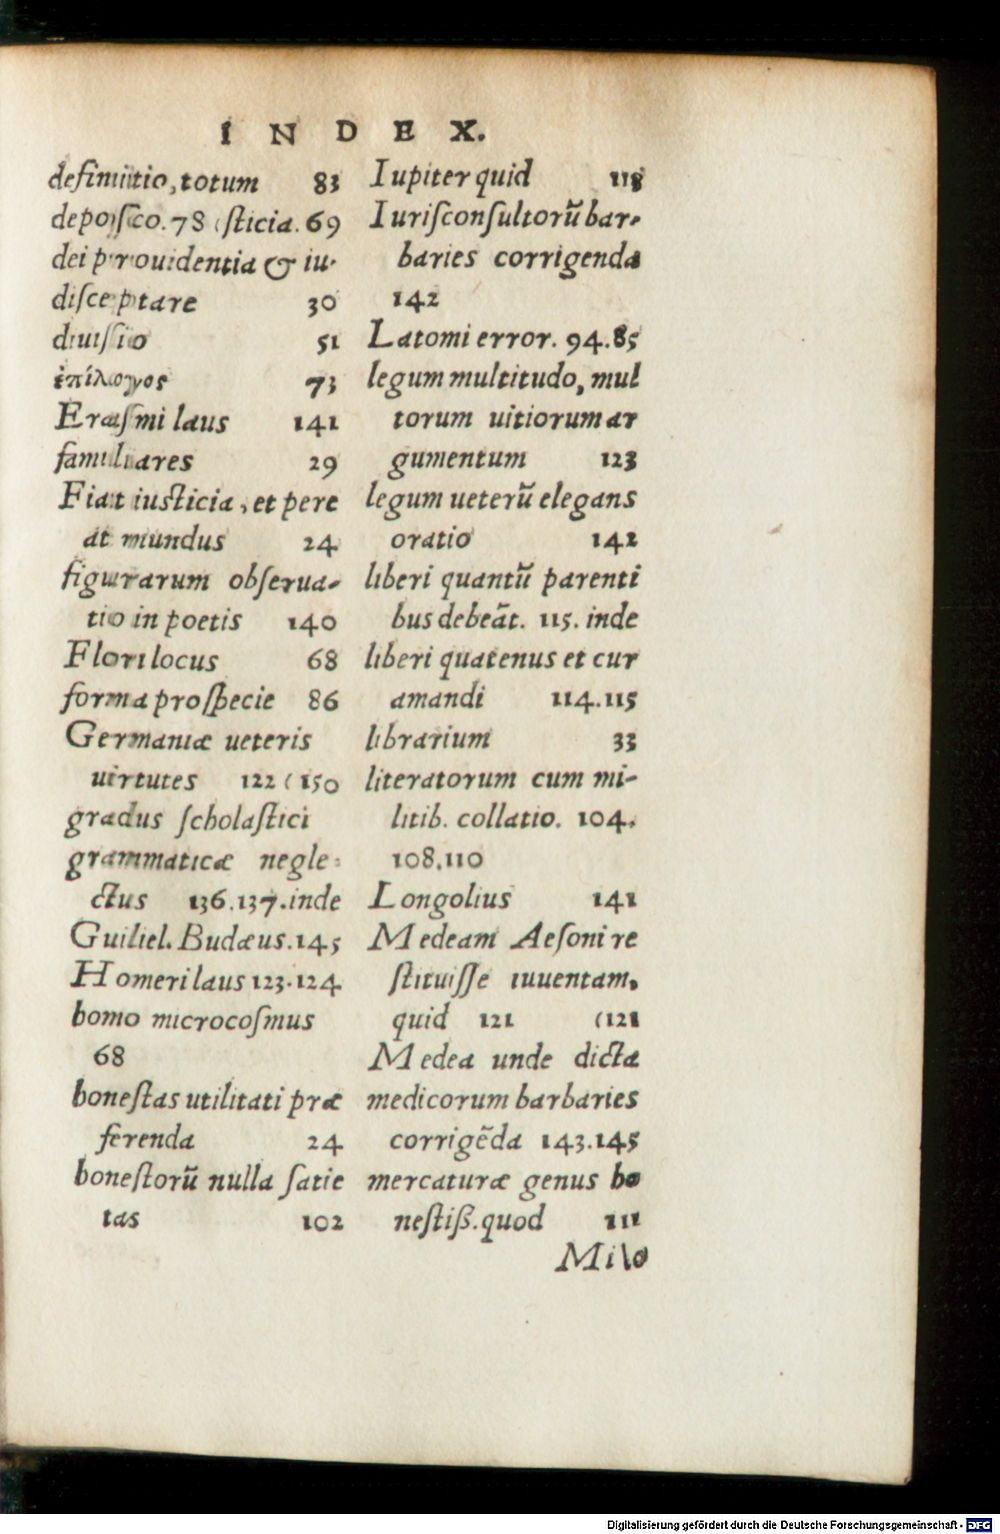 INDEX.
definitio, totum 83
deposco. 78 (sticia. 69
dei prouidentia & iu-
disceptare 30
diuisio 51
ἐπίλογος 73
Erasmi laus 141
familiares 29
Fiat iusticia, et pere
at mundus 24
figurarum obserua-
tio in poetis 140
Flori locus 68
forma pro specie 86
Germaniæ ueteris
uirtutes 122 (150
gradus scholastici
grammaticæ negle-
ctus 136.137.inde
Guiliel. Budæus.145
Homeri laus 123.124
homo microcosmus
68
honestas utilitati præ
ferenda 24
honestorū nulla satie
tas 102
Iupiter quid 118
Iurisconsultorū bar-
baries corrigenda
142
Latomi error. 94.85
legum multitudo, mul
torum uitiorum ar
gumentum 123
legum ueterū elegans
oratio 142
liberi quantū parenti
bus debeāt. 115. inde
liberi quatenus et cur
amandi 114.115
librarium 33
literatorum cum mi-
litib. collatio. 104.
108.110
Longolius 141
Medeam Aesoni re
stituisse iuuentam,
quid 121 (121
Medea unde dicta
medicorum barbaries
corrigēda 143.145
mercaturæ genus ho
nestiß. quod 111
Milo
Digitalisierung gefördert durch die Deutsche Forschungsgemeinschaft - DFG